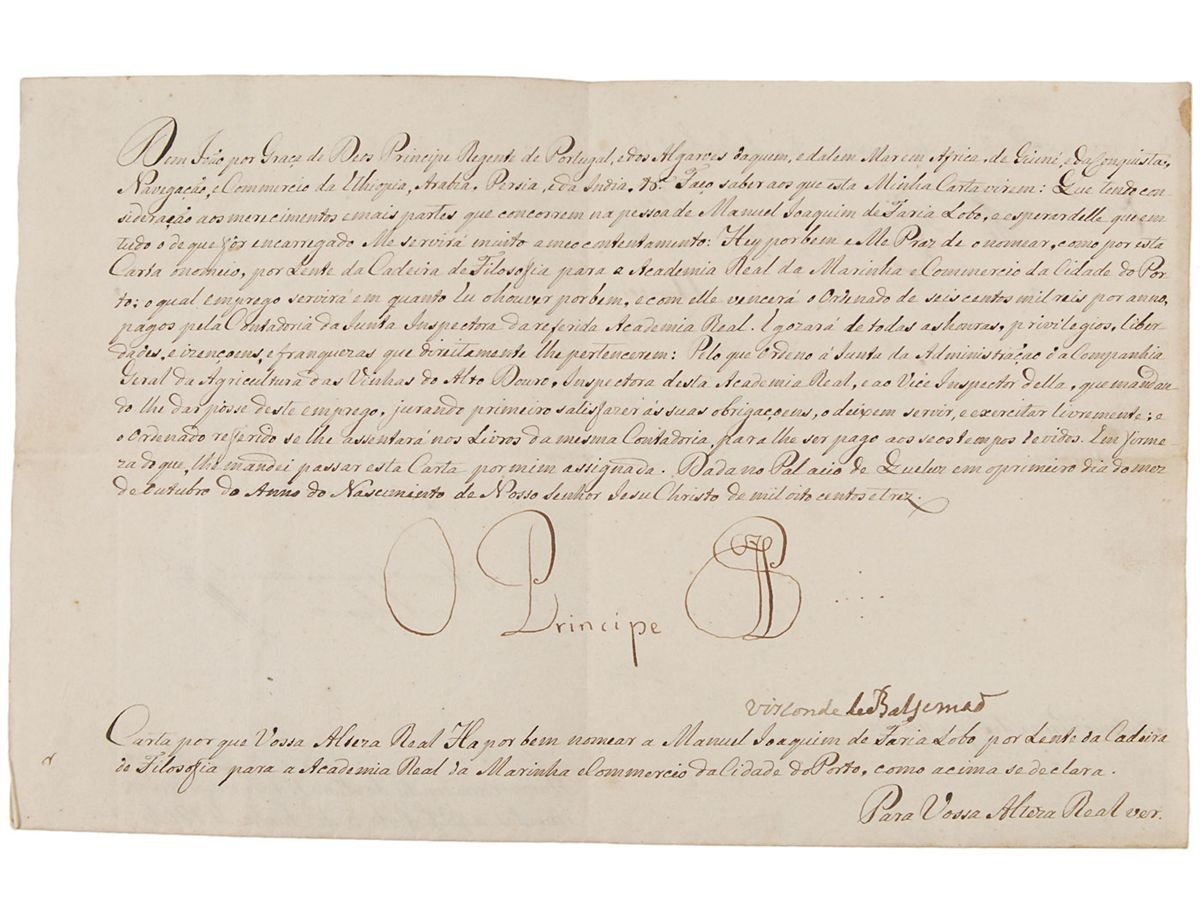 Dom João por Graça de Deos Principe Regente de Portugal, e dos Algarves daquem, e dalem Mar em Africa, de Guiné, e da Conquista,
Navegação, e Commercio da Ethiopia, Arabia, Persia, e da India, &c.ª Faço saber aos que esta Minha Carta virem: Que tendo con-
sideração aos merecimentos e mais partes que concorrem na pessoa de Manuel Joaquim de Faria Lobo, e esperar delle que em
tudo o de que fôr encarregado Me servirá muito a meo contentamento: Hey por bem e Me Praz de o nomear, como por esta
Carta o nomeio, por Lente da Cadeira de Filosofia para a Academia Real da Marinha e Commercio da Cidade do Por-
to; o qual emprego servirá em quanto Eu o houver por bem, e com elle vencerá o Ordenado de seis centos mil reis por anno,
pagos pela Contadoria da Junta Inspectora da referida Academia Real. E gozará de todas as honras, privilegios, liber-
dades, e izençoens, e franquezas que direitamente lhe pertencerem: Pelo que Ordeno á Junta da Administração da Companhia
Geral da Agricultura das Vinhas do Alto Douro, Inspectora desta Academia Real, e ao Vice Inspector della, que mandan-
do lhe dar posse deste emprego, jurando primeiro satisfazer ás suas obrigaçoens, o deixem servir, e exercitar livremente; e
o Ordenado referido se lhe assentará nos Livros da mesma Contadoria, para lhe ser pago aos seos tempos devidos. Em firme
za do que, lhe mandei passar esta Carta por mim assignada. Dada no Palacio de Queluz em o primeiro dia do mez
de Outubro do Anno do Nascimento de Nosso Senhor Jesu Christo de mil oito centos e trez.
O Principe
Visconde de Balsemaõ
Carta por que Vossa Alteza Real Ha por bem nomear a Manuel Joaquim de Faria Lobo por Lente da Cadeira
de Filosofia para a Academia Real da Marinha e Commercio da Cidade do Porto, como acima se declara.
Para Vossa Alteza Real ver.